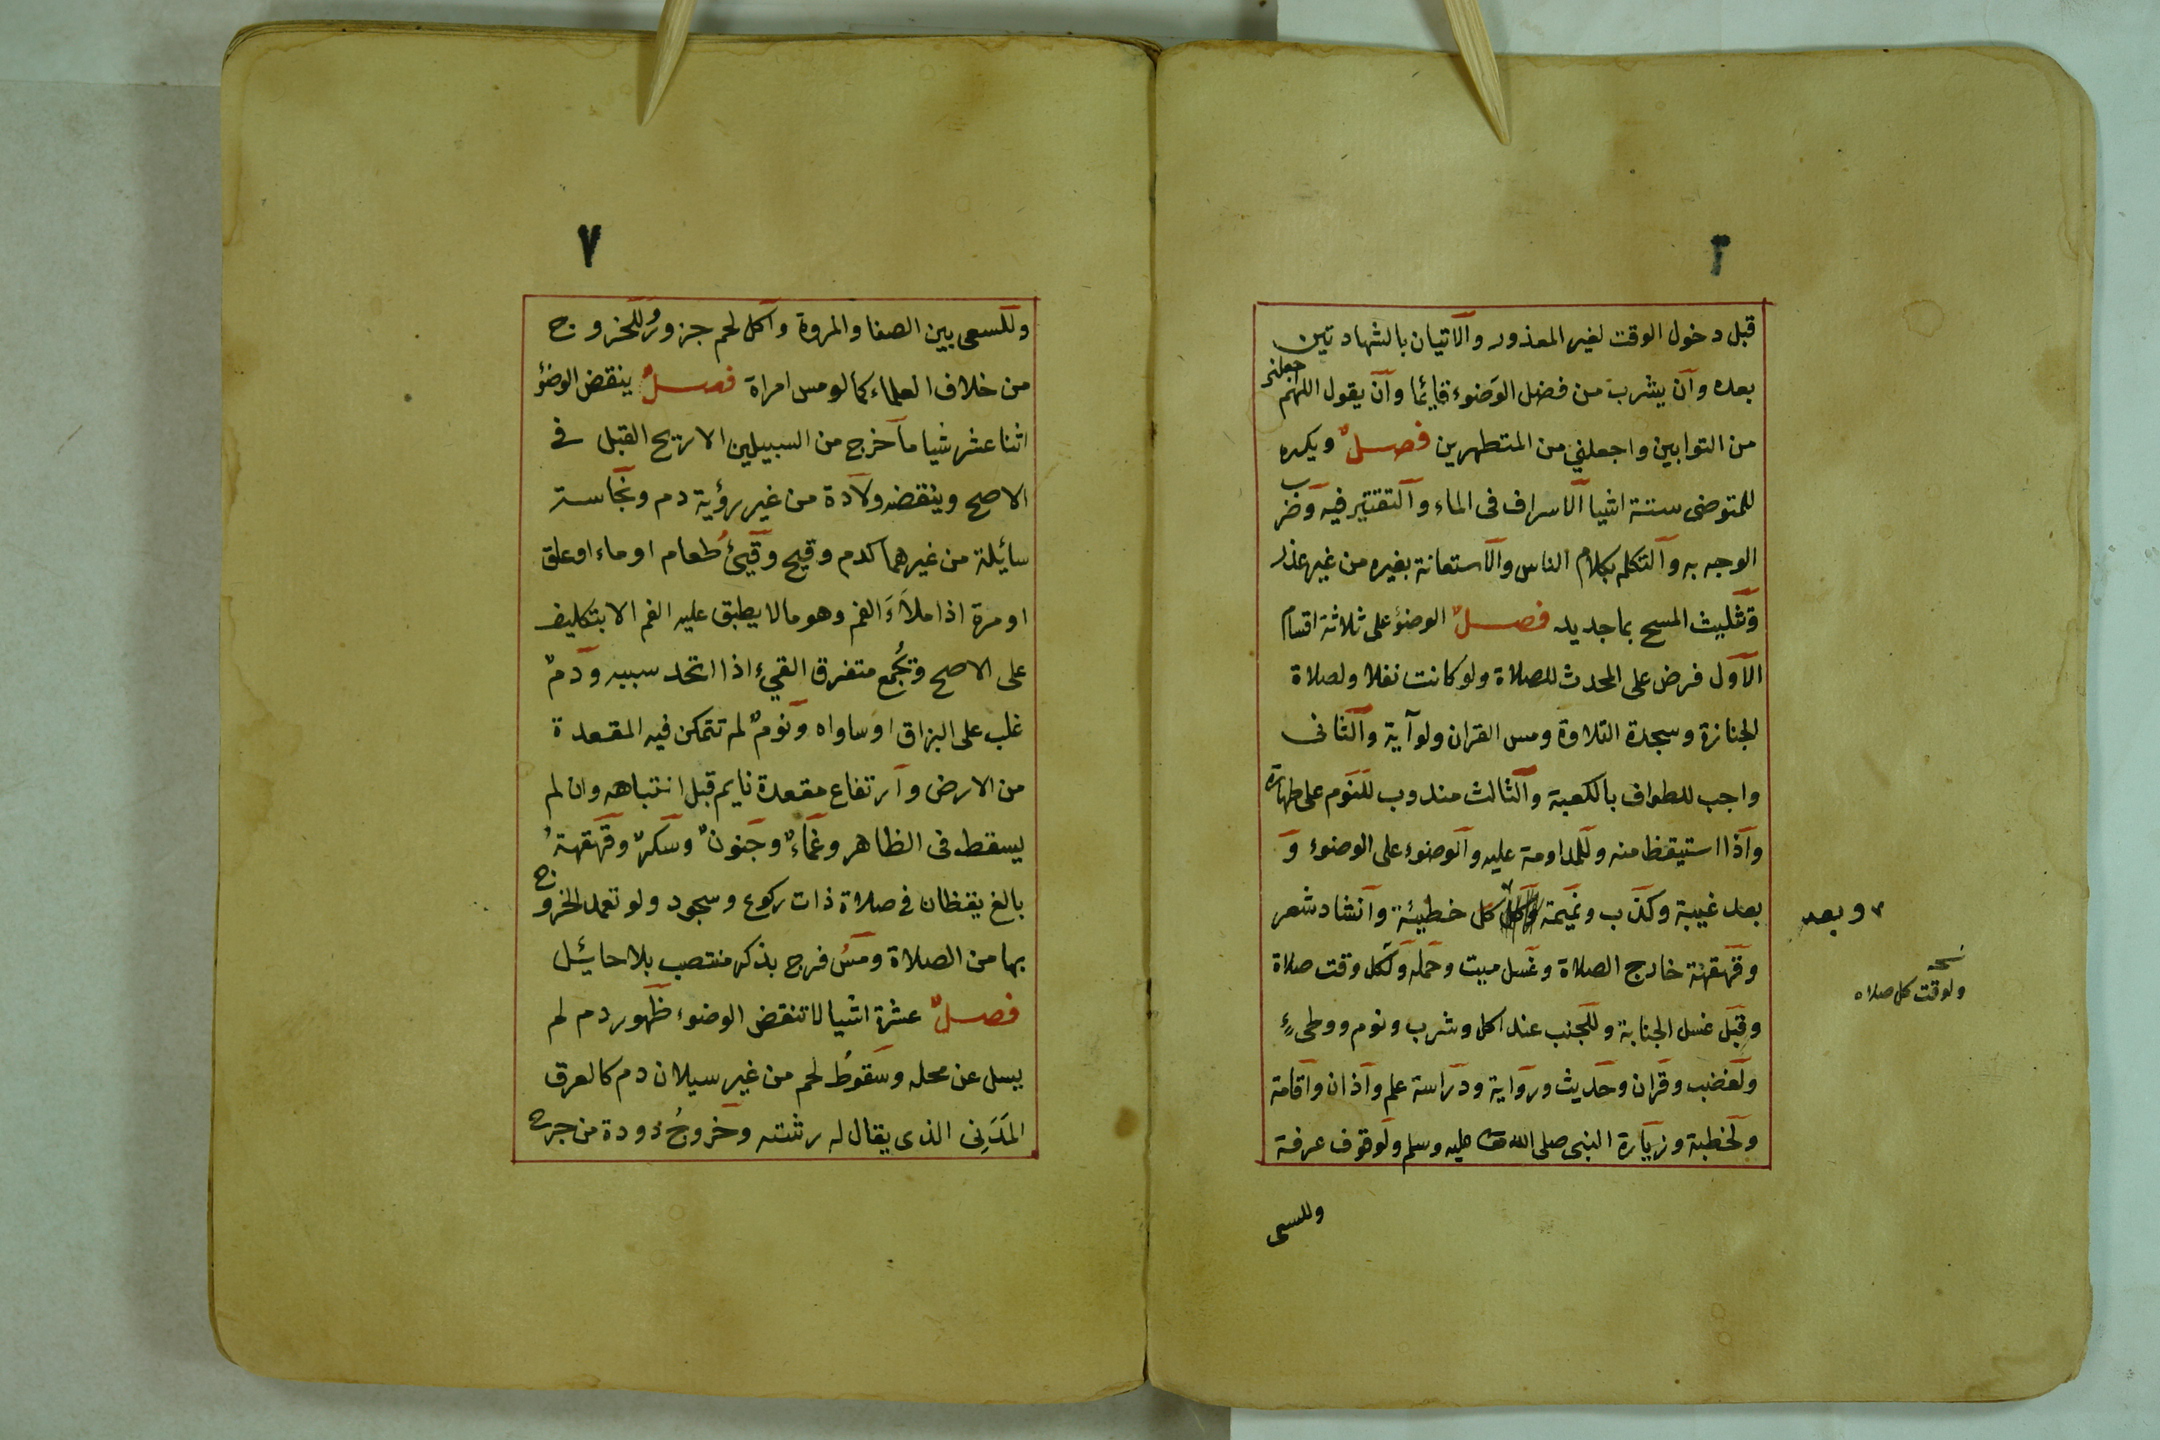 ٦
قبل دخول الوقت لغير المعذور والاتيان بالشهادتين
بعده وان يشرب من فضل الوضوء قايما وان يقول اللهم اجعلني
من التوابين واجعلني من المتطهرين فصل ويكره
للمتوضى ستة اشيا الاسراف فى الماء والتقتير فيه وضرب
الوجه به والتكلم بكلام الناس والاستعانة بغيره من غير عذر
وتثليث المسح بما جديد فصل الوضؤ على ثلاثة اقسام
الاول فرض على المحدث للصلاة ولو كانت نفلا ولصلاة
الجنازة وسجدة التلاوة ومس القران ولو آية والثانى
واجب للطواف بالكعبة والثالث مندوب للنوم على طهارة
واذا استيقظ منه وللمداومة عليه والوضوء على الوضوء و
بعد غيبة وكذب ونميمة كل خطيئة وانشاد شعر
وقهقهة خارج الصلاة وغسل ميت وحمله ولكل وقت صلاة
وقبل غسل الجنابة وللجنب عند اكل وشرب ونوم ووطىء
ولغضب وقران وحديث ورواية ودراسة علم واذان واقامة
ولخطبة وزيارة النبى صلى الله عليه وسلم ولوقوف عرفة
وبعد
نسخه
ولوقت كل صلاه
وللسعى
٧
وللسعى بين الصفا والمروة واكل لحم جزور وللخروج
من خلاف العلماء كما لو مس امراة فصل ينقض الوضؤ
اثنا عشر شيا ما خرج من السبيلين الا ريح القبل فى
الاصح وينقضه ولادة من غير رؤية دم ونجاسة
سائلة من غيرهما كدم وقيح وقيئ طعام او ماء او علق
او مرة اذا ملاء الفم وهو ما لا يطبق عليه الفم الا بتكليف
على الاصح وتجمع متفرق القيء اذا اتحد سببه ودم
غلب على البزاق او ساواه ونوم لم تتمكن فيه المقعدة
من الارض وارتفاع مقعدة نايم قبل انتباهه وان لم
يسقط فى الظاهر وغماء وجنون وسكر وقهقهة
بالغ يقظان فى صلاة ذات ركوع وسجود ولو تعمد الخروج
بها من الصلاة ومس فرج بذكر منتصب بلا حائل
فصل عشرة اشيا لا تنقض الوضوء ظهور دم لم
يسل عن محله وسقوط لحم من غير سيلان دم كالعرق
المدنى الذى يقال له رشته وخروج دودة من جرح